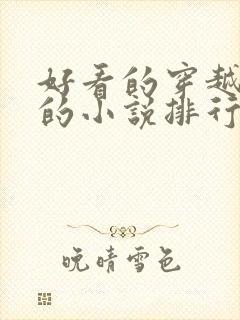 好看的穿越
的小说排行
晚晴雪色